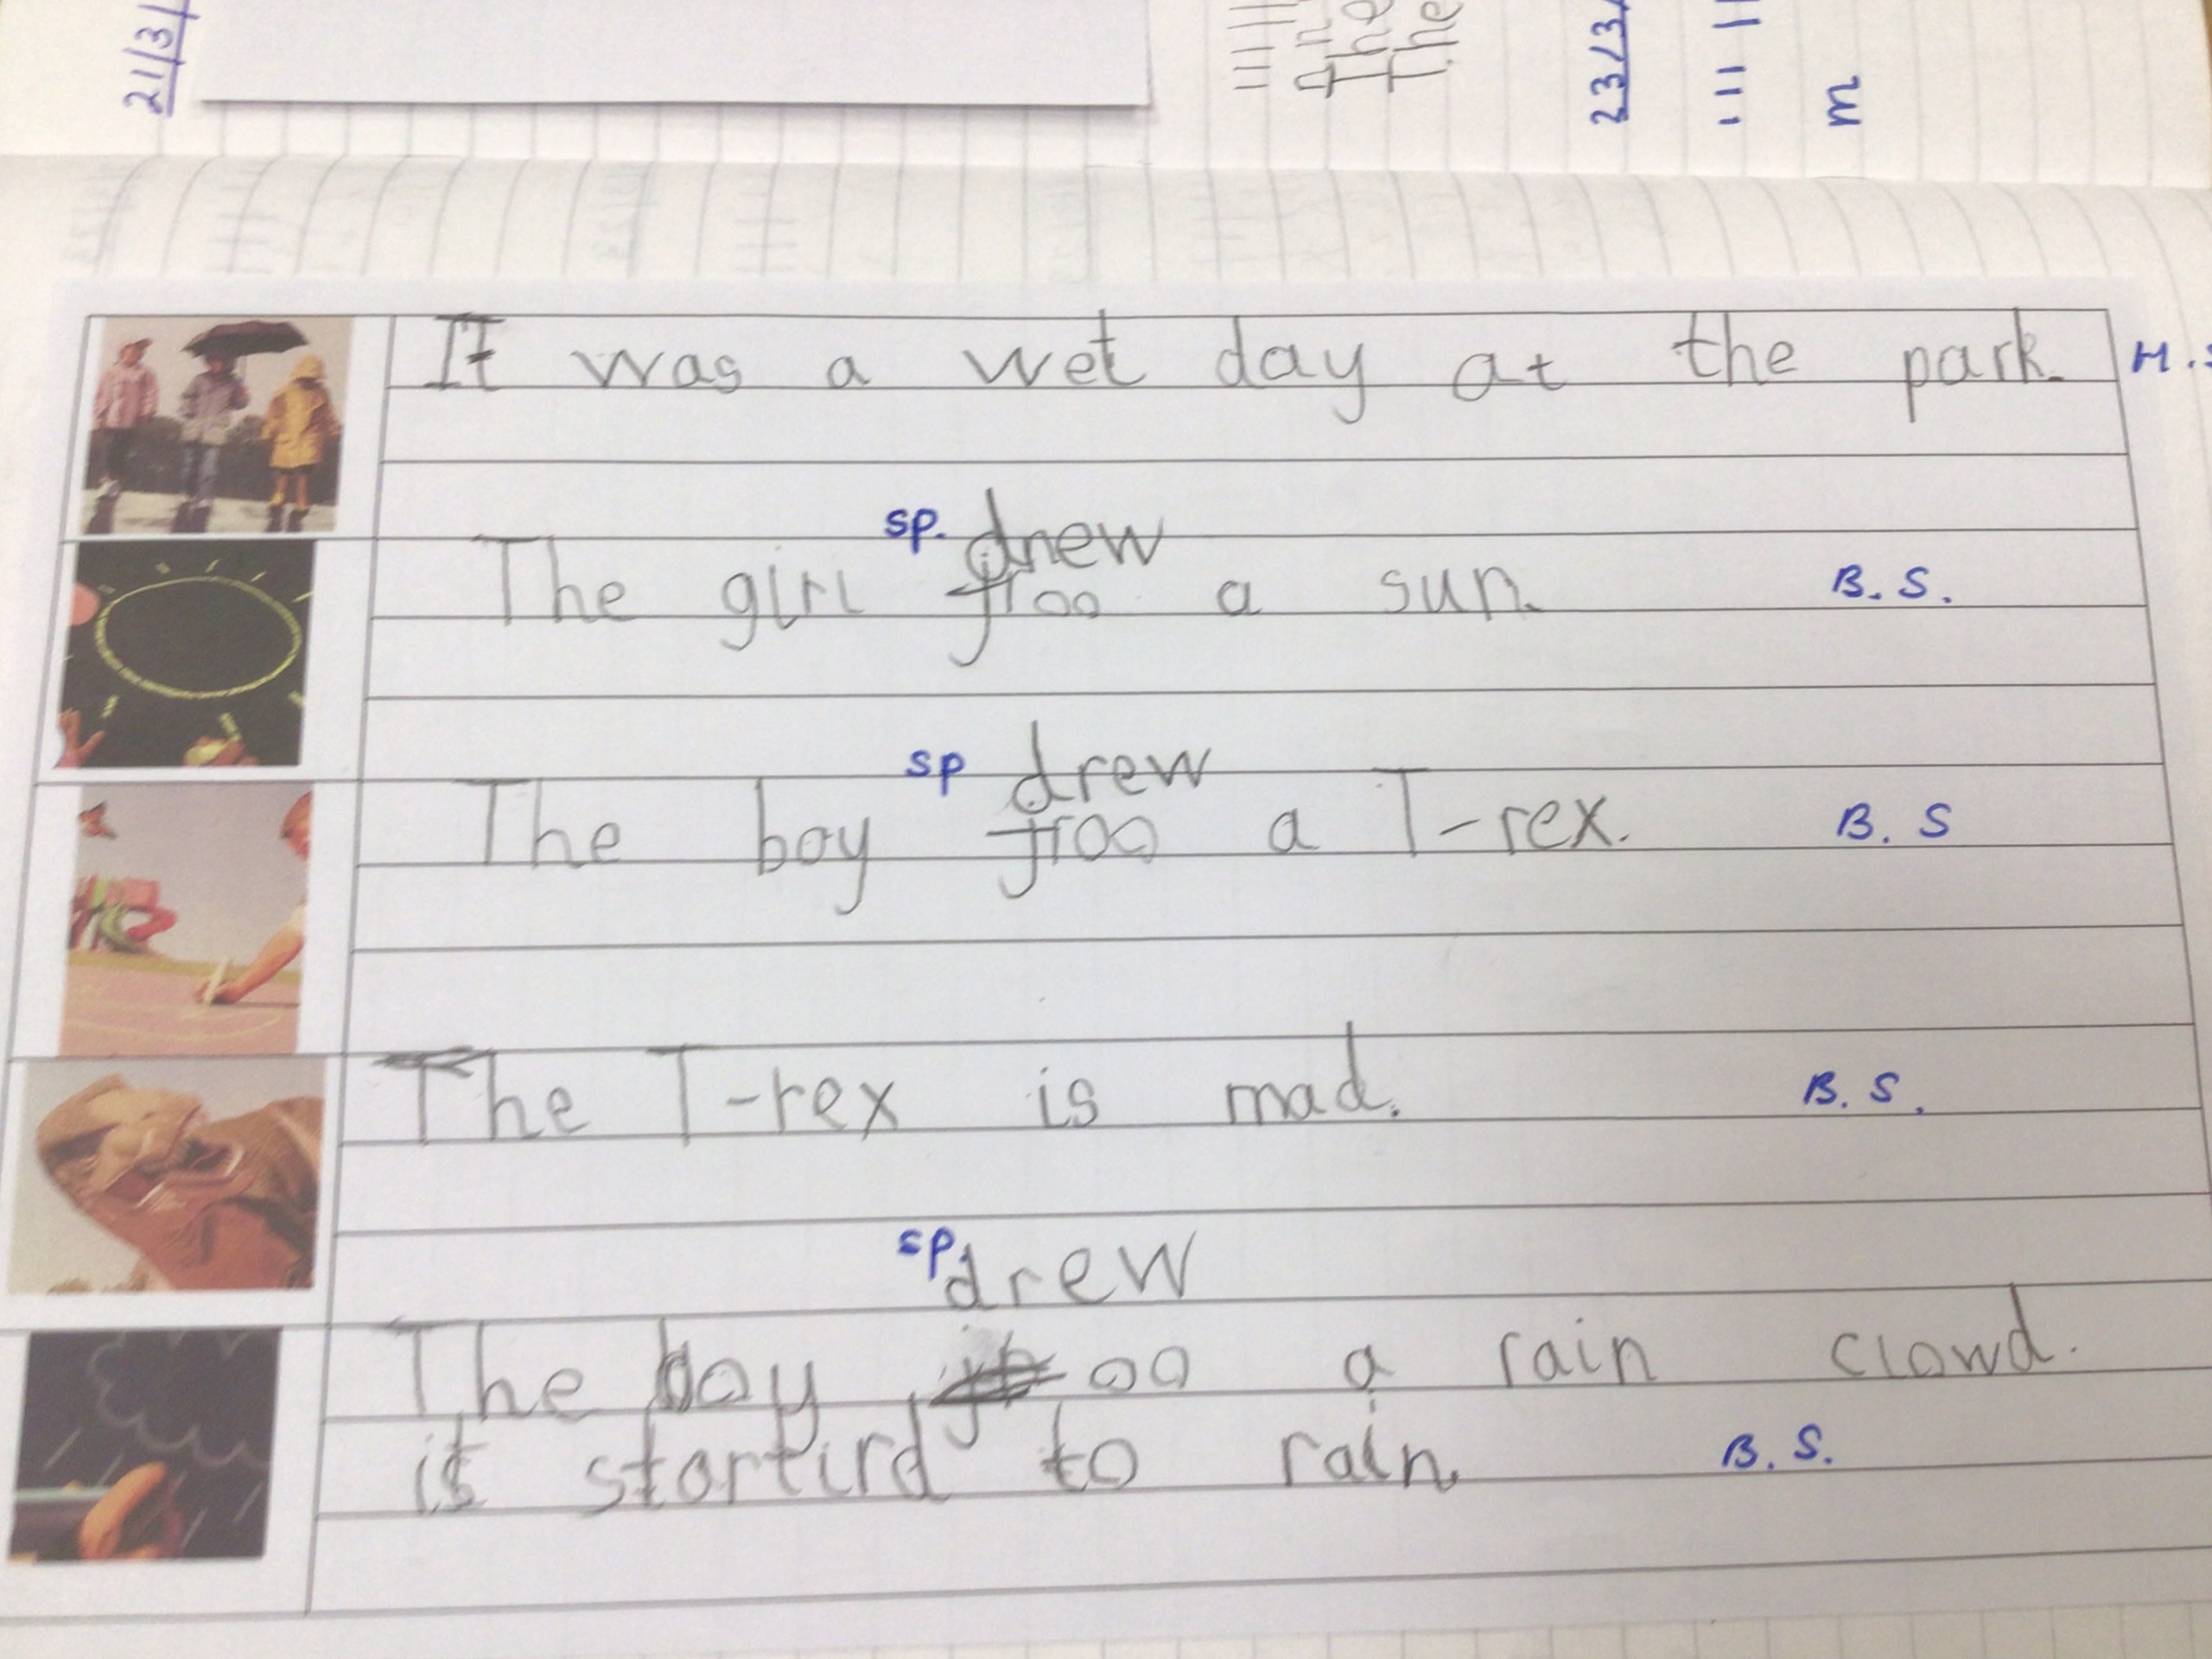 21/3/
An
The
The
23/3/
m
It was a wet day at the park. H.
sp. drew
The girl jroo a sun. B. S.
sp drew
The boy jroo a T-rex. B. S
The T-rex is mad. B. S.
sp. drew
The boy oo a rain clowd.
it startird to rain. B. S.